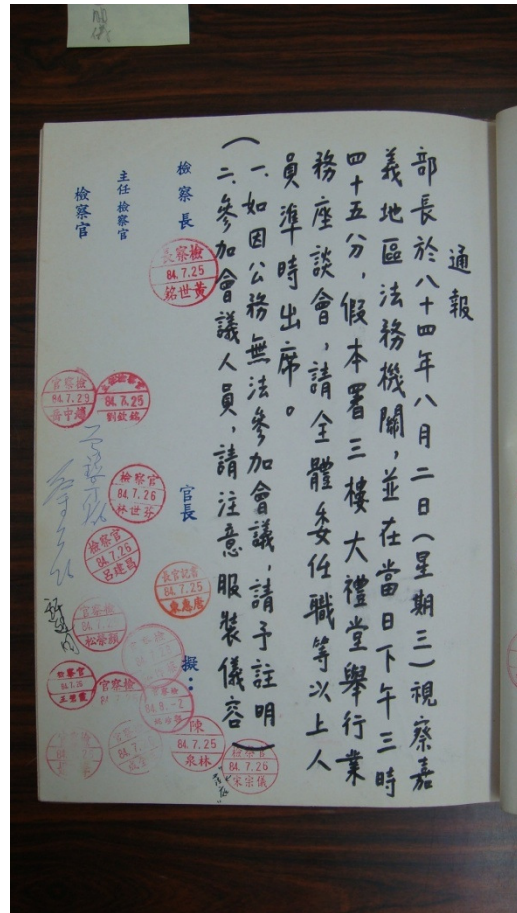 通報
部長於八十四年八月二日(星期三)視察嘉
義地區法務機關,並在當日下午三時
四十五分,假本署三樓大禮堂舉行業
務座談會,請全體委任職等以上人
員準時出席。
(一、如因公務無法參加會議,請予註明
二、參加會議人員,請注意服裝儀容)
檢察長
官長
擬:
主任檢察官
檢察官
長察檢
84.7.25
銘世黃
官察檢
84.7.29
84.7.25
劉欽銘
檢察官
84.7.26
林世芬
檢察官
84.7.26
呂建昌
長官記書
84.7.25
官察檢
松榮顏
官察檢
陳
84.7.25
泉林
檢察官
84.7.26
宋宗儀